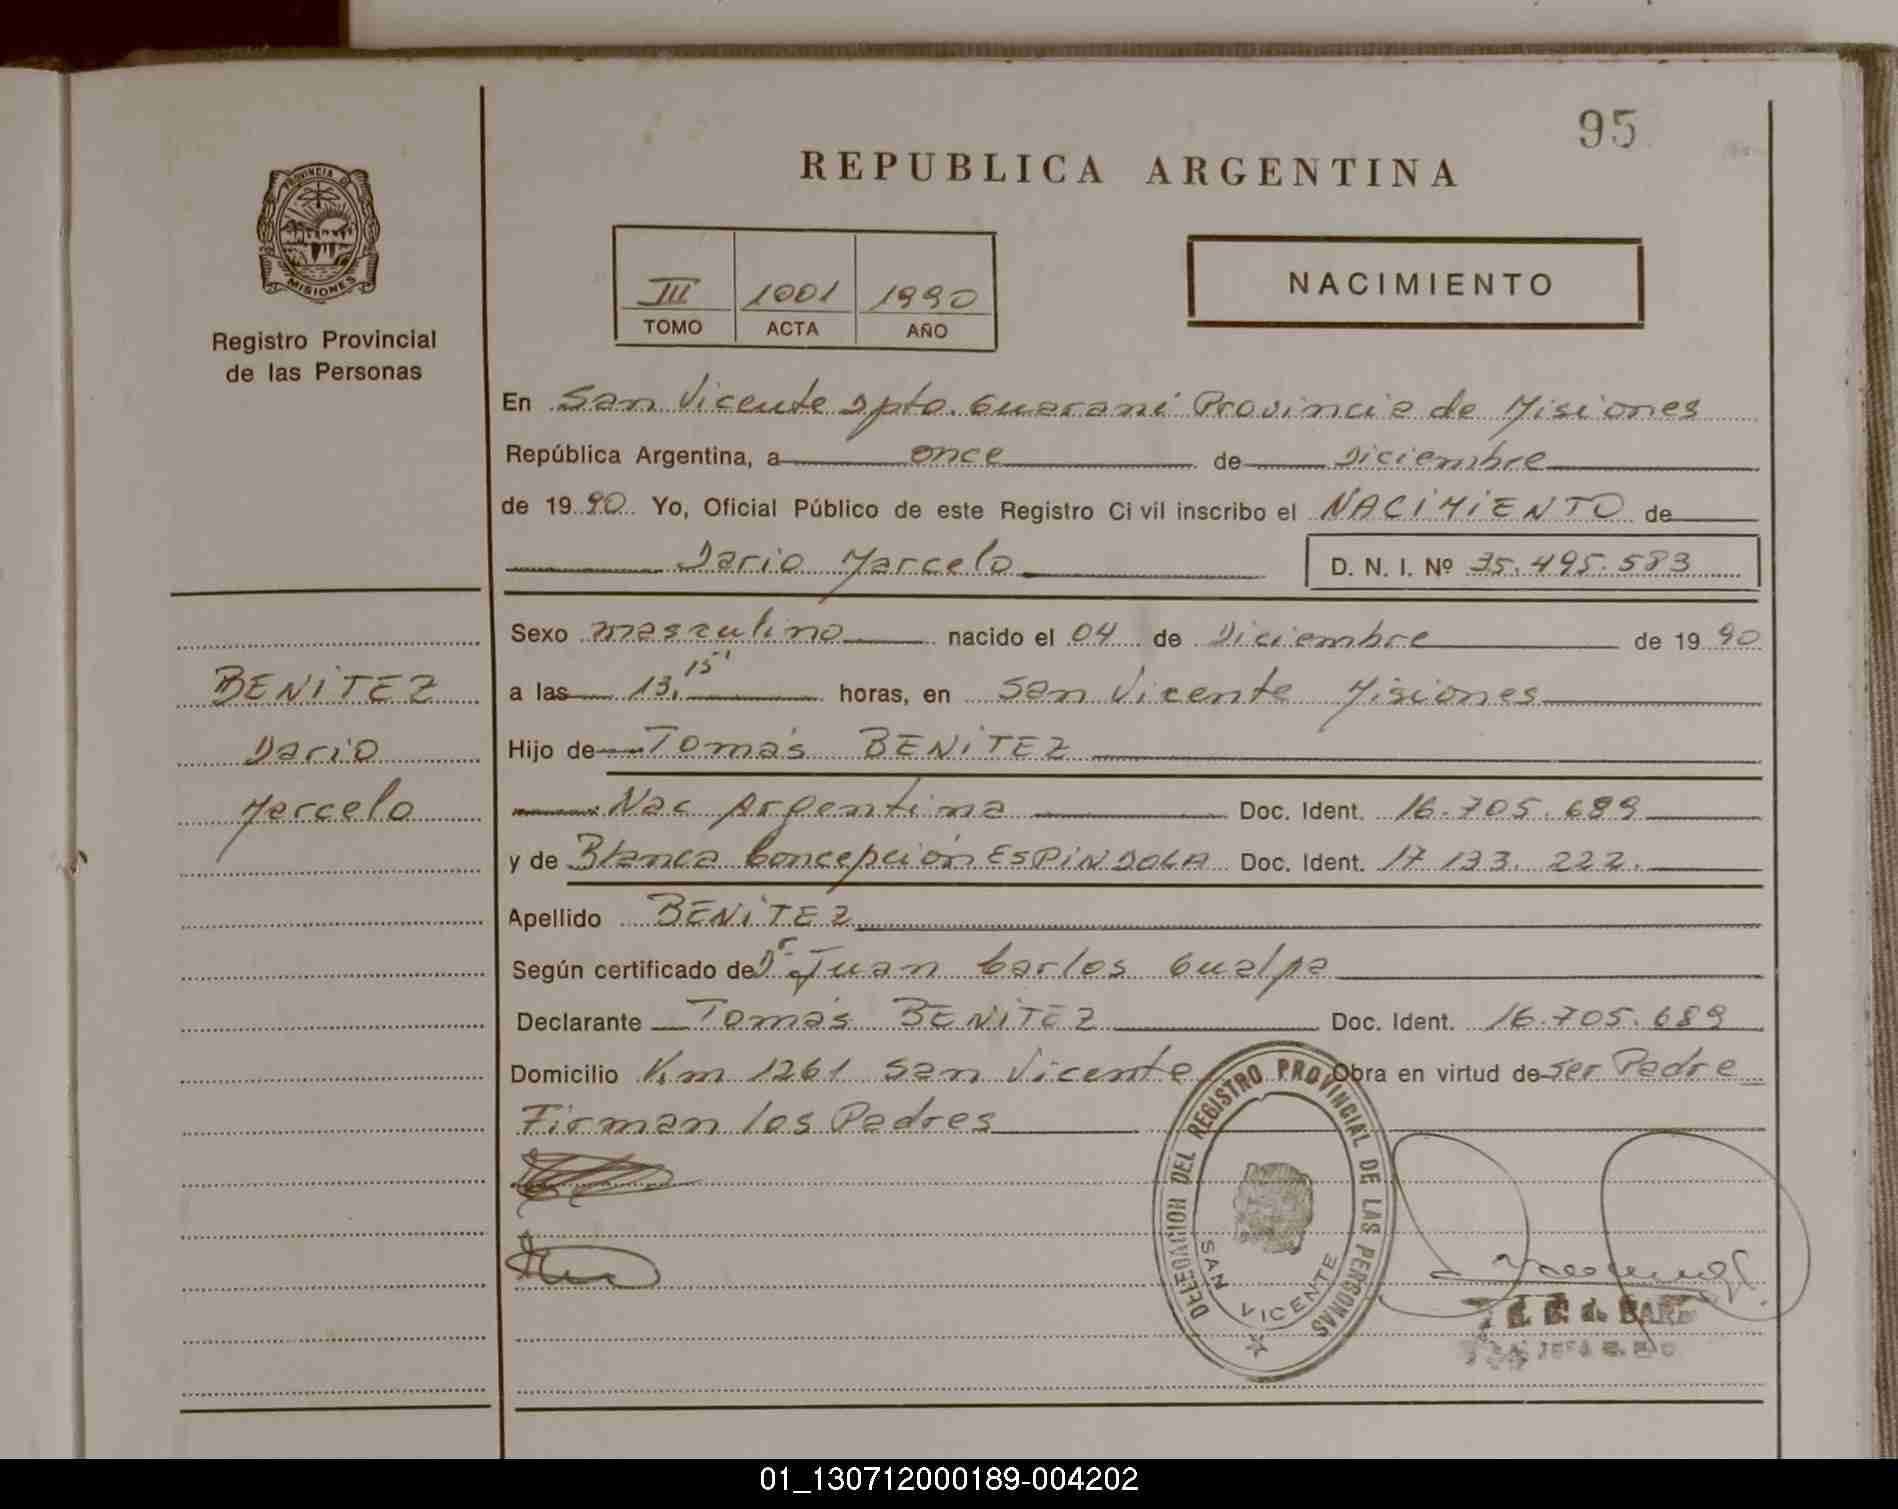 95
REPUBLICA ARGENTINA
PROVINCIA DE
MISIONES
Registro Provincial
de las Personas
III 1001 1990
TOMO ACTA AÑO
NACIMIENTO
En San Vicente Dpto. Guaraní Provincia de Misiones
República Argentina, a once de Diciembre
de 1990 Yo, Oficial Público de este Registro Civil inscribo el NACIMIENTO de
Dario Marcelo D. N. I. Nº 35.495.583
Sexo masculino nacido el 04 de Diciembre de 1990
a las 13,15' horas, en San Vicente Misiones
Hijo de Tomás BENITEZ
Nac Argentina Doc. Ident. 16.705.689
y de Blanca Concepción ESPINDOLA Doc. Ident. 17 133. 222.
Apellido BENITEZ
Según certificado de Dr Juan Carlos Gualpa
Declarante Tomás BENITEZ Doc. Ident. 16.705.689
Domicilio Km 1261 San Vicente Obra en virtud de ser Padre
Firman los Padres
BENITEZ
Dario
Marcelo
DELEGACION DEL REGISTRO PROVINCIAL DE LAS PERSONAS
SAN VICENTE
01_130712000189-004202